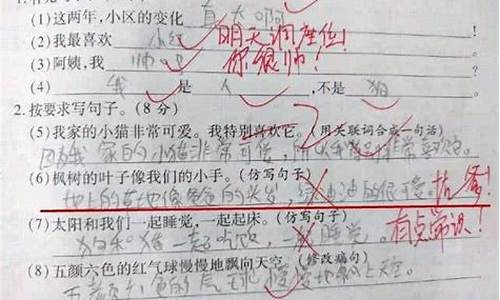 (1)这两年,小区的变化真大啊
(2)我最喜欢小红
明天调座位!
(3)阿姨,我帅吧
你很帅!
(4)我是人,不是狗
2.按要求写句子。(8分)
(5)我家的小猫非常可爱。我特别喜欢它。(用关联词合成一句话)
因为我家的小猫非常可爱,所以我非常喜欢它。
(6)枫树的叶子像我们的小手。(仿写句子)
地上的草地像爸爸的头发,绿油油的很可爱。
(7)太阳和我们一起睡觉,一起起床。(仿写句子)
狗和猪一起吃饭,一起睡觉。
有点常识!
(8)五颜六色的红气球慢慢地飘向天空。(修改病句)
五颜六色的气球慢慢地飘上天空。